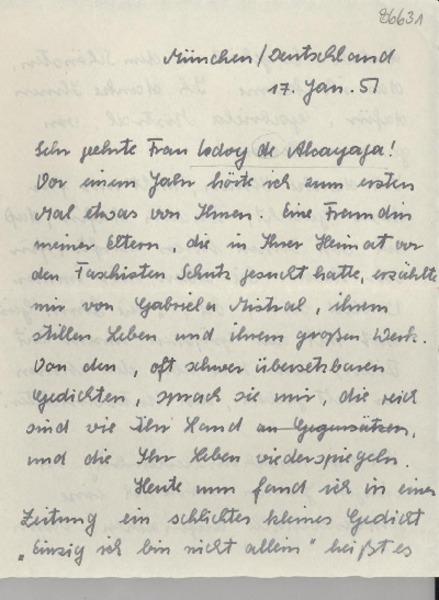 86631
München/Deutschland
17. Jan. 51
Sehr geehrte Frau Godoy de Alcayaga!
Vor einem Jahr hörte ich zum ersten
Mal etwas von Ihnen. Eine Freundin
meiner Eltern, die in Ihrer Heimat vor
den Faschisten Schutz gesucht hatte, erzählte
mir von Gabriela Mistral, ihrem
stillen Leben und ihrem großen Werk.
Von den, oft schwer übersetzbaren
Gedichten, sprach sie mir, die reich
sind wie Ihr Land an Gegensätzen,
und die Ihr Leben wiederspiegeln.
Heute nun fand ich in einer
Zeitung ein schlichtes kleines Gedicht
„Einzig ich bin nicht allein" heißt es